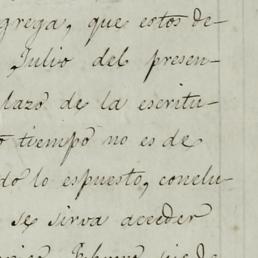 grega, que estos de-
Julio del presen-
lazo de la escritu-
tiempo no es de
do lo espuesto, conclu-
se sirva acceder